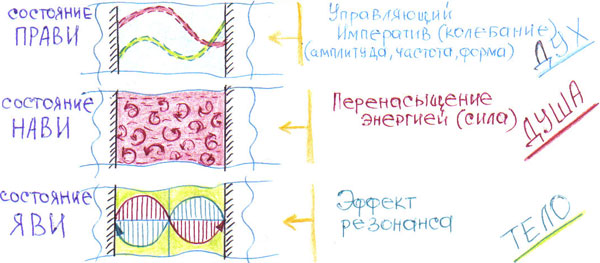 состояние
ПРАВИ
Управляющий
Императив (колебание)
(амплитуда, частота, форма)
ДУХ
состояние
НАВИ
Перенасыщение
энергией (сила)
ДУША
состояние
ЯВИ
Эффект
резонанса
ТЕЛО